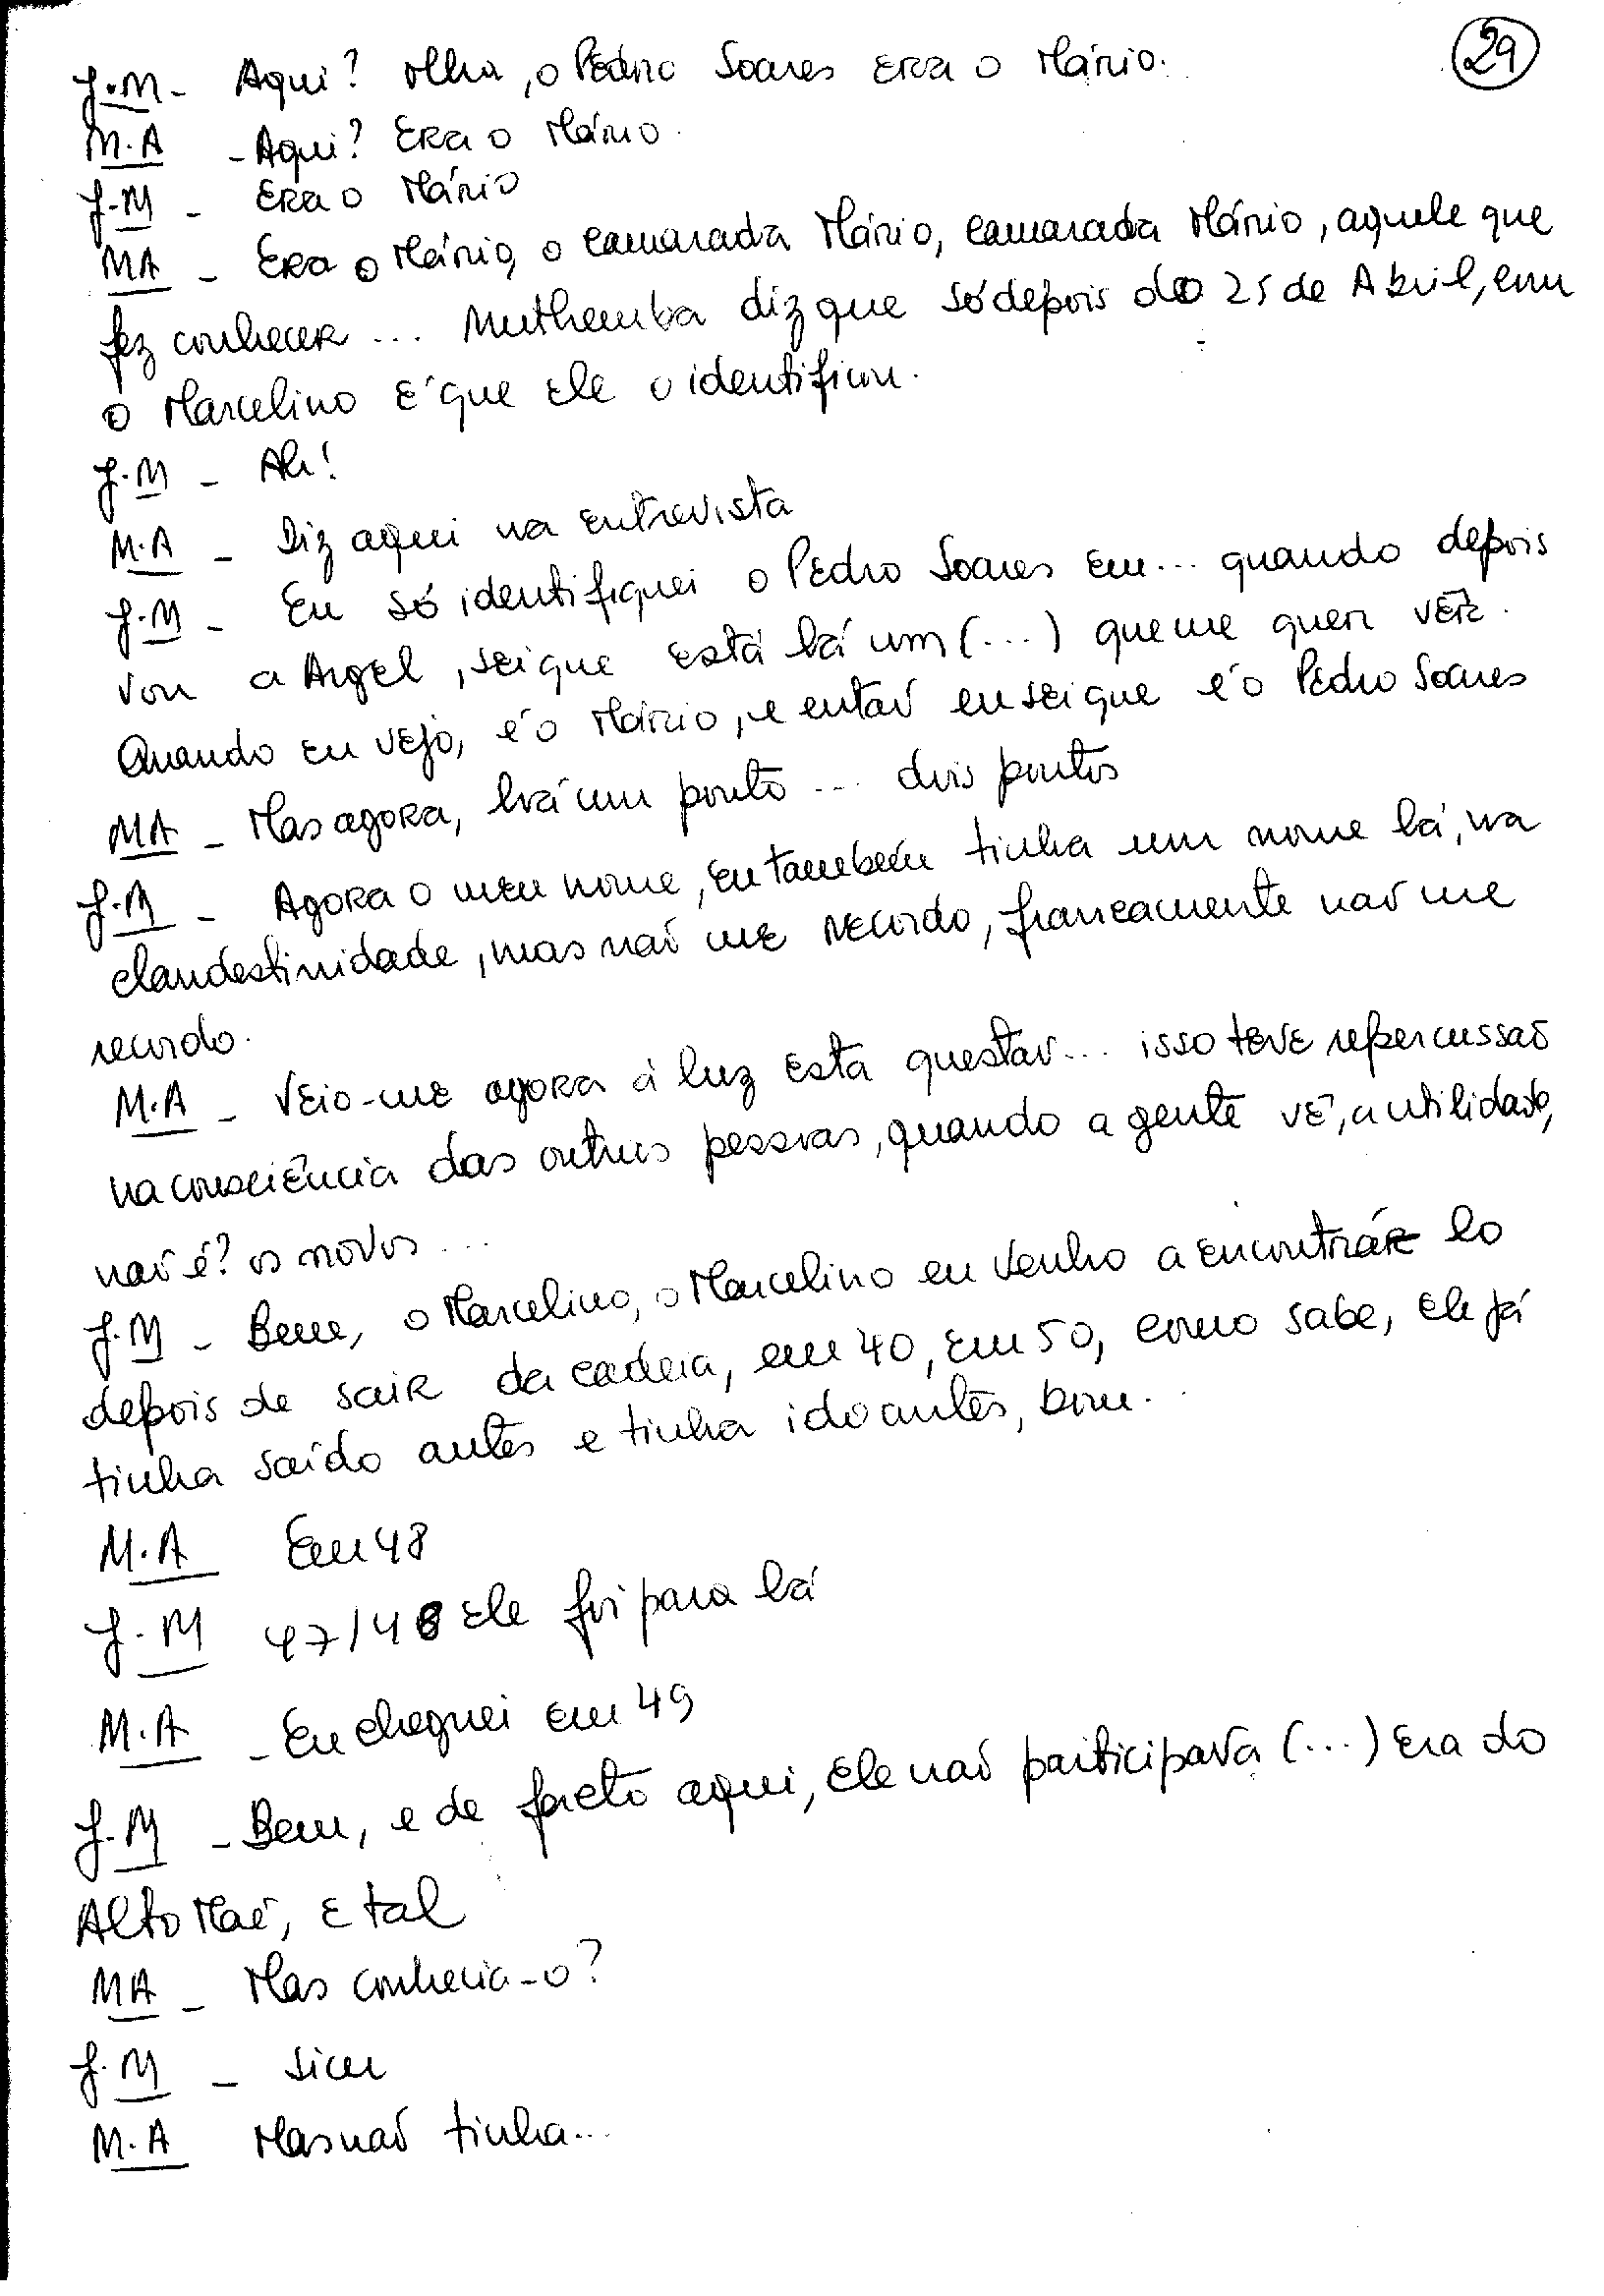 29
J.M - Aqui? Olha, o Pedro Soares era o Mário.
M.A - Aqui? Era o Mário.
J.M - Era o Mário
MA - Era o Mário, o camarada Mário, camarada Mário, aquele que
fez conhecer ... Muthemba diz que só depois do 25 de Abril, com
o Marcelino é que ele o identificou.
J.M - Ah!
M.A - Diz aqui na entrevista
J.M - Eu só identifiquei o Pedro Soares em... quando depois
vou a Argel, sei que está lá um (...) que me quer vêr.
Quando eu vejo, é o Mário, e entaõ eu sei que é o Pedro Soares
MA - Mas agora, há um ponto ... dois pontos
J.M - Agora o meu nome, eu também tinha um nome lá, na
clandestinidade, mas naõ me recordo, francamente naõ me
recordo.
M.A - Veio-me agora à luz esta questaõ... isso teve repercussaõ
na consciência das outras pessoas, quando a gente vê, a utilidade,
naõ é? os novos ...
J.M - Bem, o Marcelino, o Marcelino eu venho a encontrár lo
depois de sair da cadeia, em 40, em 50, como sabe, ele já
tinha saído antes e tinha ido antes, bom...
M.A Em 48
J.M 47/48 ele foi para lá
M.A - Eu cheguei em 49
J.M - Bem, e de facto aqui, ele naõ participava (...) era do
Alto Maé, e tal
MA - Mas conhecia-o?
J.M - Sim
M.A Mas naõ tinha...